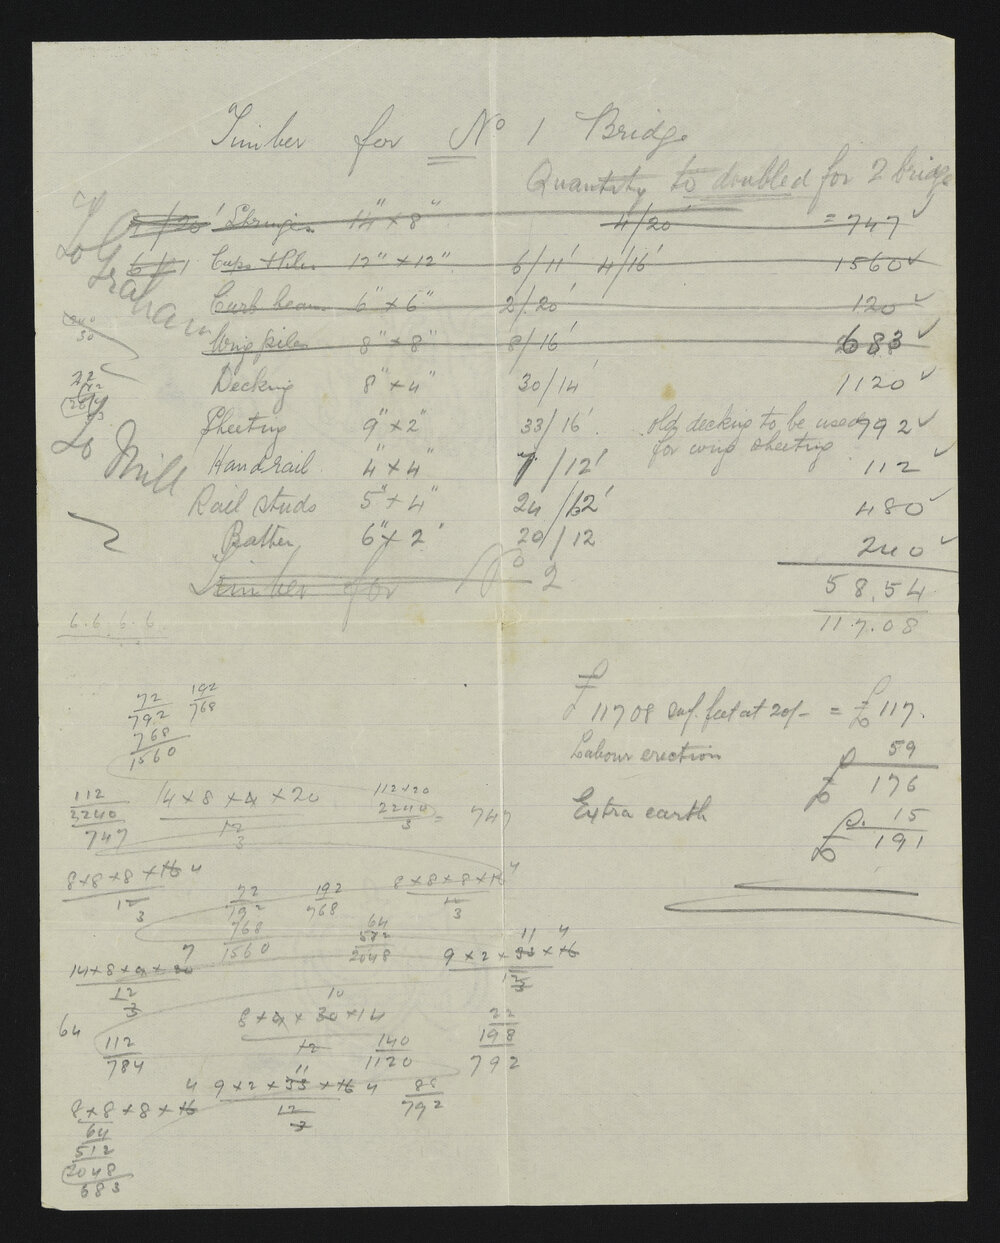 Timber for No 1 Bridge
Quantity to doubled for 2 bridge
To Graham
4/20' Stringer 14" x 8" 4/20' = 747 ✓
6/11 Caps & Piles 12" x 12" 6/11' 4/16' 1560 ✓
Curb beam 6" x 6" 2/20' 120 ✓
Wing piles 8" x 8" 8/16' 683 ✓
Decking 8" x 4" 30/14' 1120 ✓
Sheeting 9" x 2" 33/16' old decking to be used 792 ✓
for wing sheeting
To Mill
Handrail 4" x 4" 7/12' 112 ✓
Rail studs 5" x 4" 24/12' 480 ✓
Batten 6" x 2" 20/12 240 ✓
Timber for No 2
58.54
117.08
6.6.6.6.
72 192
792 768
768
1560
£ 11708 sup. feet at 20/- = £ 117.
Labour erection 59
£ 176
Extra earth £. 15
£ 191
112 14 x 8 x 4 x 20 112x20
2240 12 2240 = 747
747 3 3
8x8x8x16 4 8x8x8x16 4
12 72 192 12
3 192 768 3
768 64
1560 512
2048
7 11 4
14x8x4x20 9 x 2 x 33 x 16
12 12
3 3
64 10
8 x 4 x 30 x 14 22
112 12 140 198
784 1120 792
11
4 9 x 2 x 33 x 16 4 88
8 x 8 x 8 x 16 12 792
64 3
512
2048
683